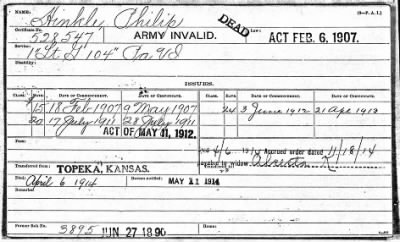 NAME, (3—P. A. I.)
Hinkley Philip
DEAD
Certificate No. 528547 ARMY INVALID. ACT FEB. 6, 1907.
Service:
1" Lt. G 104" Pa VI
Identity:
ISSUES.
CLASS. RATE. DATE OF COMMENCEMENT. DATE OF CERTIFICATE. CLASS. RATE. DATE OF COMMENCEMENT. DATE OF CERTIFICATE.
15 18 Feb 1907 9" May 1907 24 3 June 1912 21 Apr 1913
20 17 July 1911 28 July 1911
ACT OF MAY 11, 1912.
4/6 1914 Accrued order dated 11/18/14
Transferred from TOPEKA, KANSAS. payable to widow
Died April 6 1914 Bureau notified MAY 11 1914
Former Roll No. 3895 JUN 27 1890